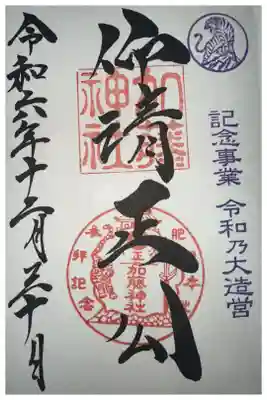 記念事業 令和乃大造営
仰清正公
加藤神社
加藤神社
拝記念
令和六年十二月十日